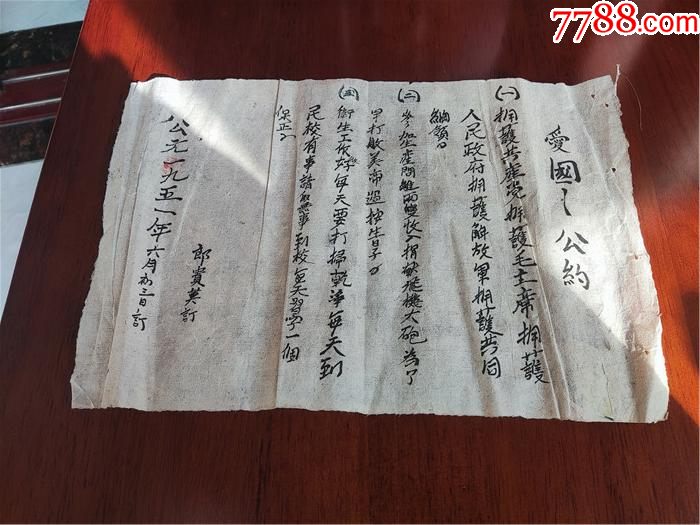 7788.com
愛國之公約
(一)拥護共產党拥護毛主席拥护
人民政府拥護解放軍拥護共同
綱領
(二)参加生產 捐献飛機大砲為了
早打敗美帝过按生日子
(三)衛生工作 每天要打掃乾淨每天到
民校有事請 到校每天習字一個
保正
郎貴英訂
公元一九五一年六月初三日訂